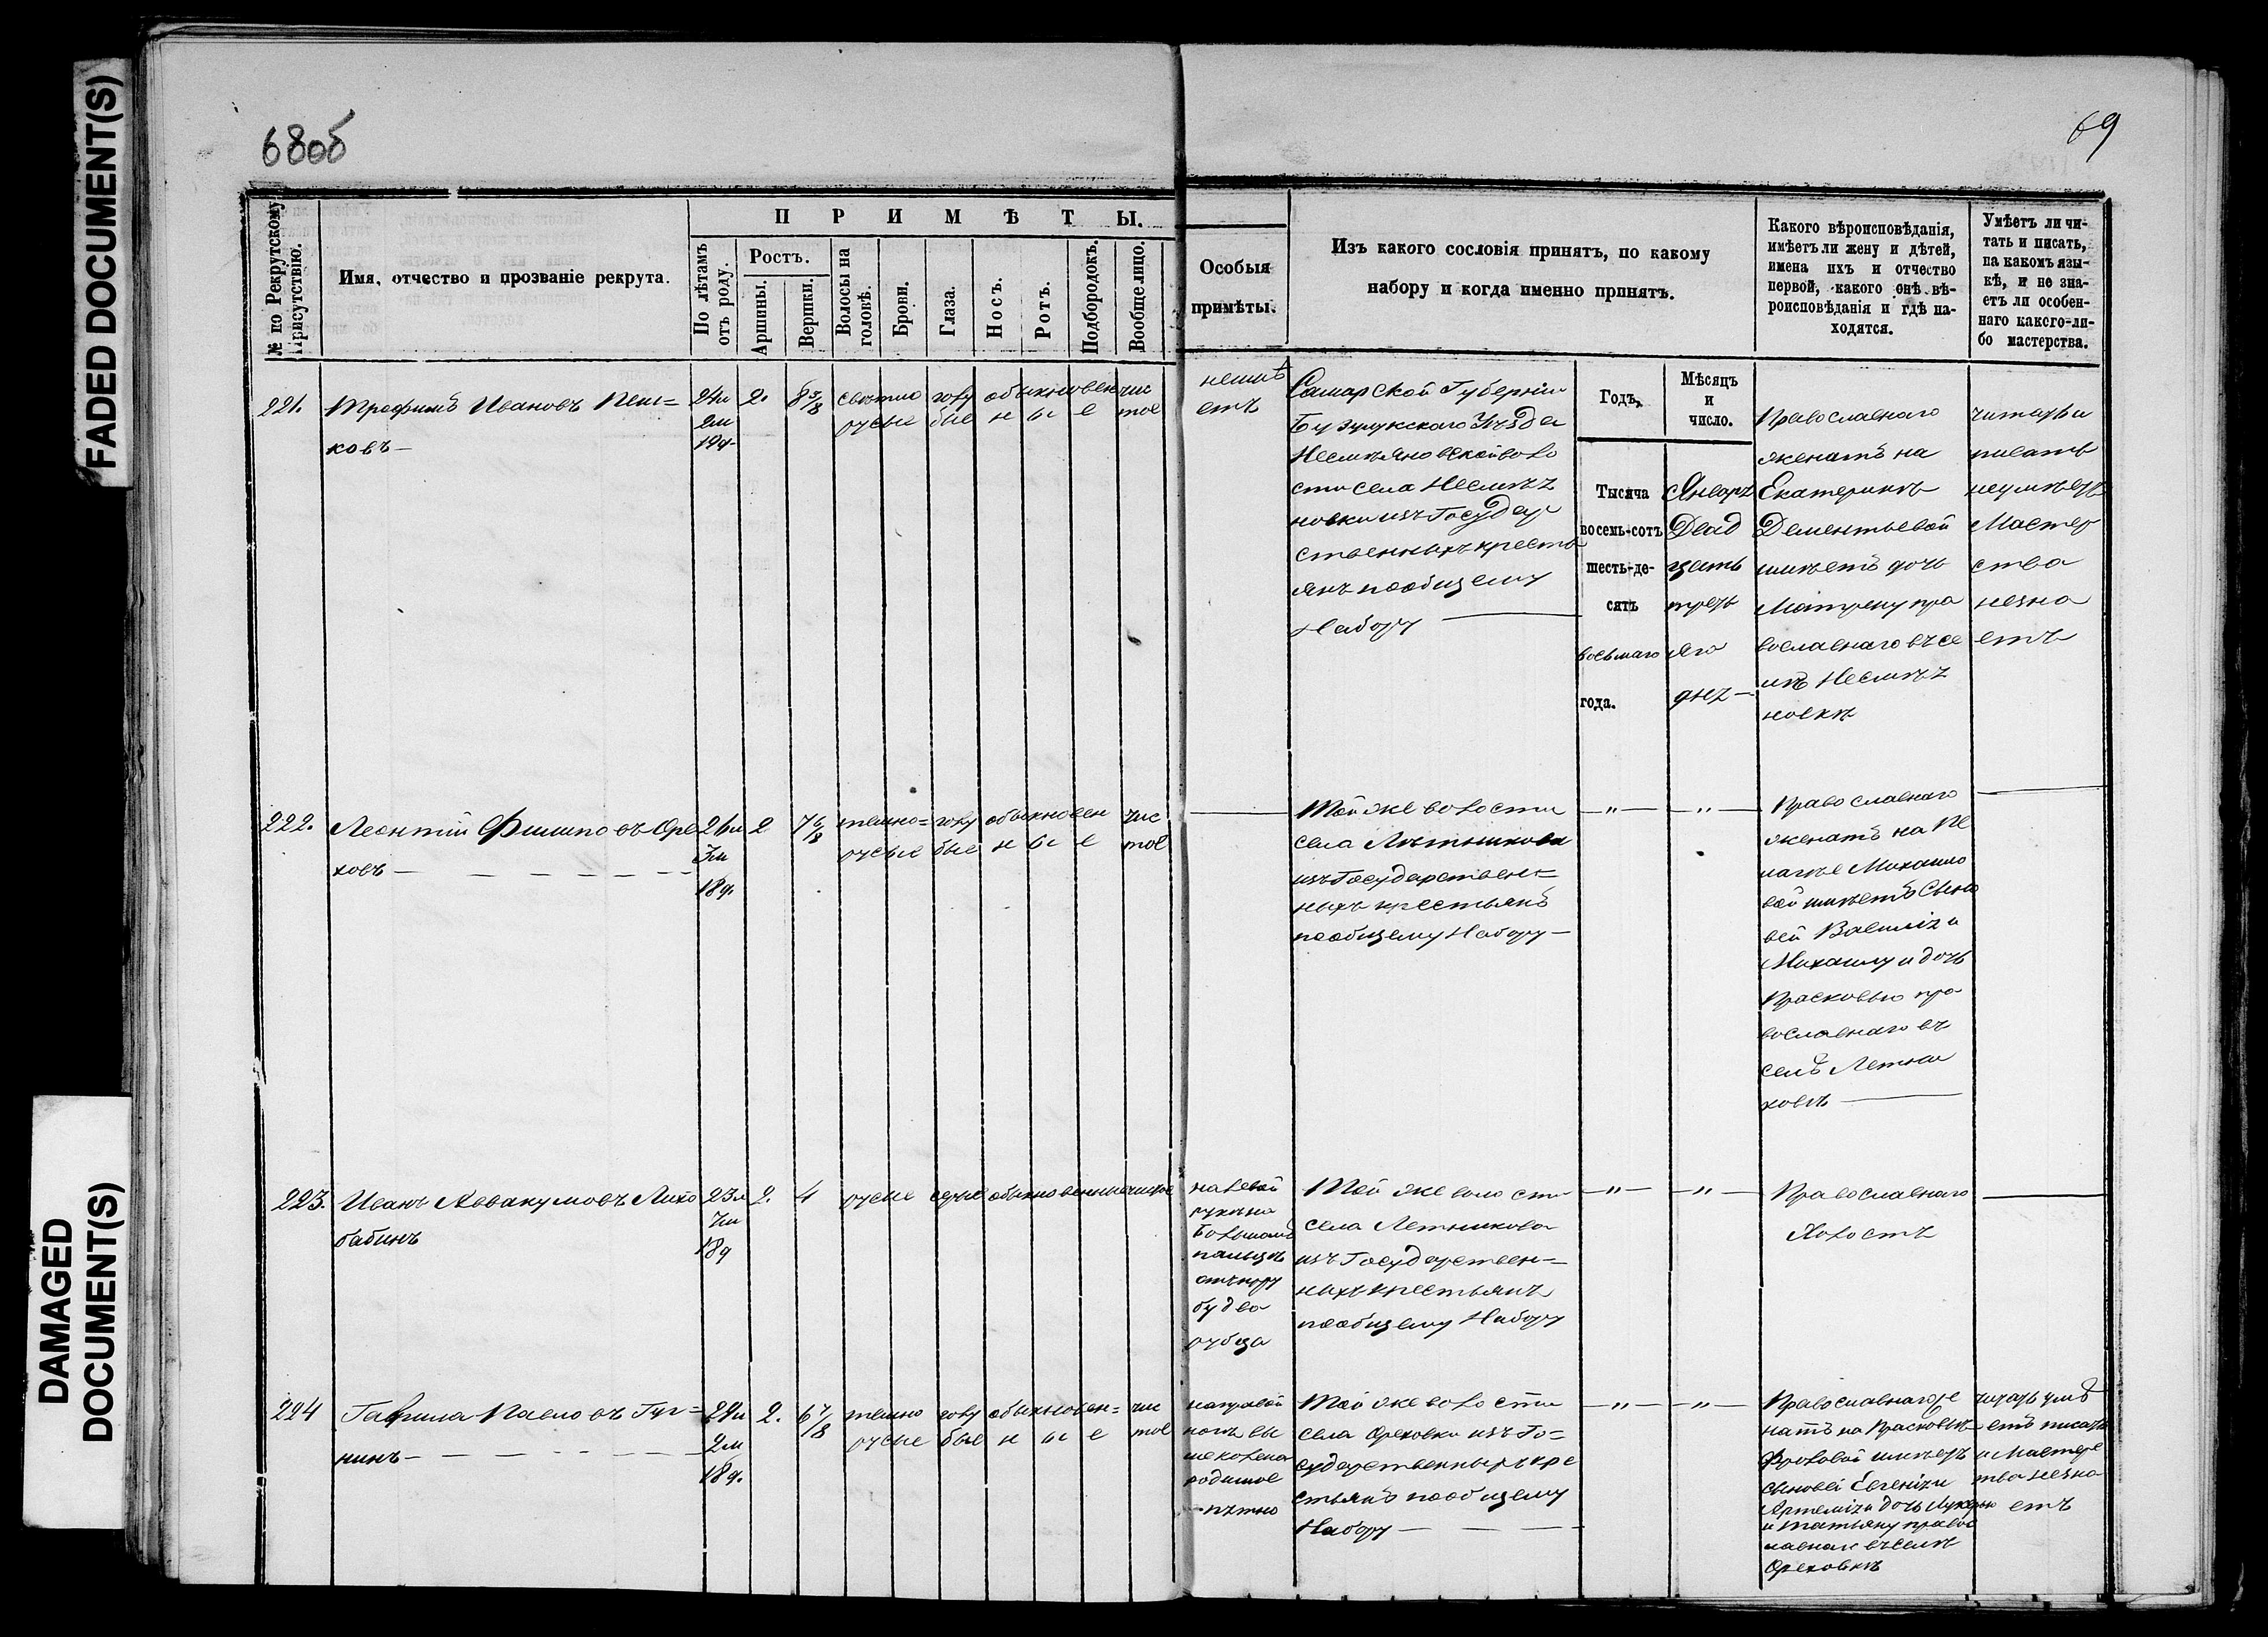 FADED DOCUMENT(S)
DAMAGED
DOCUMENT(S)
68об
69
№ по Рекрутскому
Присутствію.
Имя, отчество и прозваніе рекрута.
ПРИМѢТЫ.
По лѣтамъ
отъ роду.
Ростъ.
Аршины.
Вершки.
Волосы на
головѣ.
Брови.
Глаза.
Носъ.
Ротъ.
Подбородокъ.
Вообще лицо.
Особыя
примѣты.
Изъ какого сословія принятъ, по какому
набору и когда именно принятъ.
Какого вѣроисповѣданія,
имѣетъ ли жену и дѣтей,
имена ихъ и отчество
первой, какого онѣ вѣ-
роисповѣданія и гдѣ на-
ходятся.
Умѣетъ ли чи-
тать и писать,
на какомъ язы-
кѣ, и не зна-
етъ ли особен-
наго какого-ли-
бо мастерства.
221.
Трофимъ Ивановъ
ковъ
24л
19д
2.
8 5/8
свѣтло
русые
голу
бые
обыкновен
н ы е
чис
тое
неимѣ
етъ
Самарской Губерніи
Бузулукскаго Уѣзда
Несмѣяновской воло
сти села Несмѣя
новки изъ Государ
ственныхъ кресть
янъ пообщему
Набору
Годъ.
Мѣсяцъ
и
число.
Тысяча
восемь-сотъ
шесть-де-
сятъ
восьмаго
года.
Январь
Двад
цать
треть
яго
дня
Православнаго
женатъ на
Екатеринѣ
Дементьевой
имѣетъ дочь
Матрену пра
вославнаго въ се
лѣ Несмѣя
новкѣ
читать и
писать
неумѣетъ
Мастер
ства
незна
етъ
222.
Леонтій Филиповъ Оре
ховъ
21л
3м
18д.
2
7 6/8
темно=
русые
голу
бые
обыкновен
н ы е
чис
тое
Той же волости
села Лѣтникова
изъ Государствен=
ныхъ крестьянъ
пообщему Набору
Православнаго
женатъ на Пе
лагѣе Михайло
вой имѣетъ Сыно
вей Василія и
Михаилу и дочь
Прасковью пра
вославнаго въ
селѣ Летни
ковѣ
223.
Иванъ Аввакумовъ Лихо
бабинъ
23л
7м
18д
2.
4
русые
серые
обыкновенные
чистое
на левой
рукѣ на
Большомъ
пальцѣ
бу два
рубца
Той же воло сти
села Летникова
изъ Государствен=
ныхъ крестьянъ
пообщему Набору
Православнаго
Холостъ
224
Гаврила Павловъ
нинъ
2м
18д.
2.
6 7/8
темно
русые
голу
бые
обыкновен=
н ы е
чис
тое
на правой
ногѣ вы
ше колена
родимое
пѣтно
Той же волости
села Ореховки изъ Го=
сударственныхъ кре
стьянъ пообщему
Набору
Православнаго же
натъ на Прасковьѣ
Фроловой имѣетъ
сыновей Евгенія и
Артемія и дочь Лукерью
и Татьяну право
славная въ селѣ
Ореховкѣ
читать умѣ
етъ писать
и мастерс
тва незна
етъ